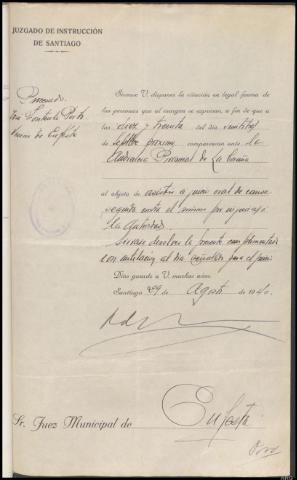 JUZGADO DE INSTRUCCIÓN
DE SANTIAGO
Procesado
José
Vecino de Enfesta
Sírvase V. disponer la citación en legal forma de
las personas que al margen se expresan, a fin de que a
las diez y treinta del día veintitrés
de Sepbre próximo comparezcan ante la
Audiencia Provincial de La Coruña
al objeto de asistir a juicio oral de causa
seguida contra el mismo por
la Autoridad
Sírvase devolver la presente cumplimentada
con antelación al día señalado para el juicio
Dios guarde a V. muchos años.
Santiago 29 de Agosto de 1940.
Sr. Juez Municipal de Enfesta